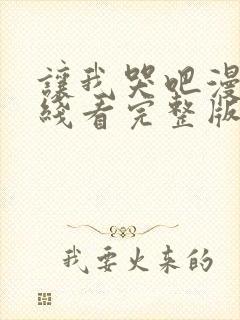 讓我哭吧漫
綫看完整版
我要火来的